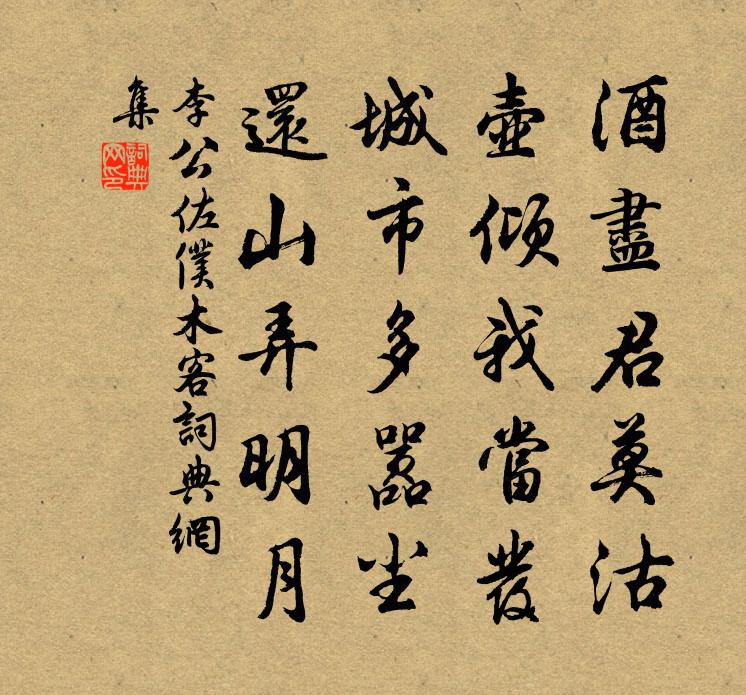 酒盡君莫沽
壺傾我當發
城市多囂尘
還山弄明月
李公佐僕木客詞典網
集
詞典
网印